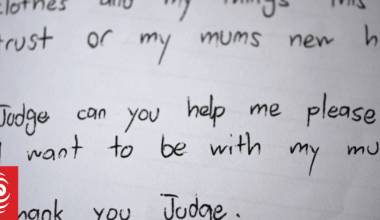 clothes and my things this
trust or my mums new h
Judge can you help me please
I want to be with my mu
hank you Judge.
RNZ